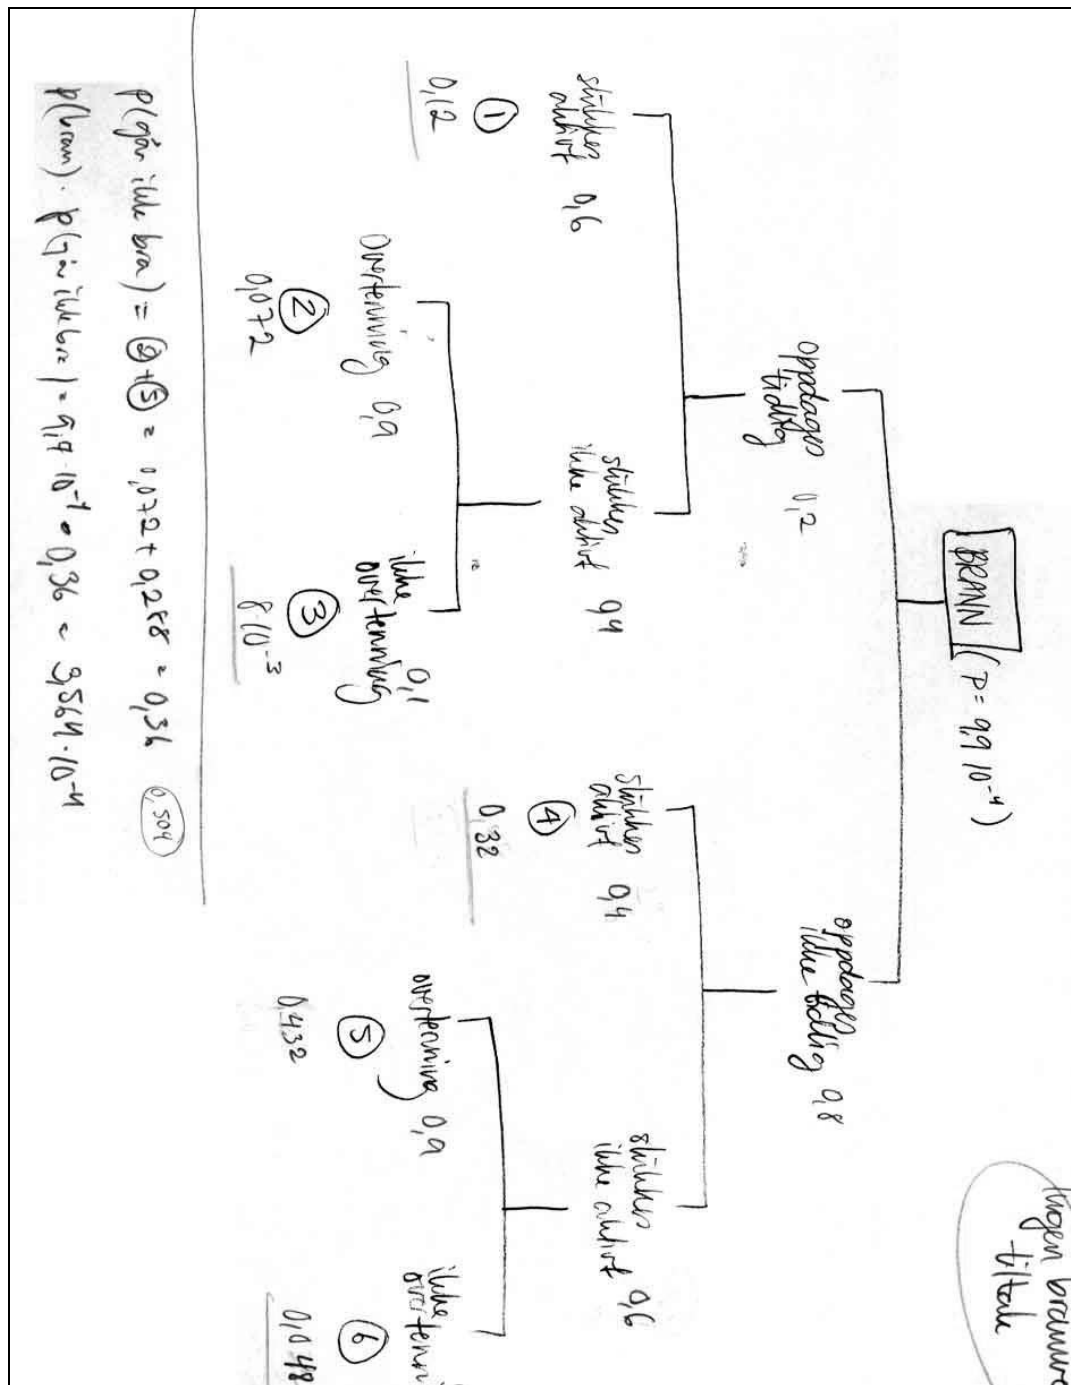 Ingen
tiltak
BRANN (P = 9,9 10⁻⁴)
oppdages
tidlig 0,2
oppdages
ikke tidlig 0,8
slukkes
aktivt 0,6
slukkes
ikke aktivt 0,4
slukkes
aktivt 0,4
slukkes
ikke aktivt 0,6
①
0,12
overtenning 0,9
②
0,072
ikke 0,1
overtenning
③
8·10⁻³
④
0,32
overtenning 0,9
⑤
0,432
ikke
overtenni
⑥
0,048
P(går ikke bra) = ②+⑤ = 0,072 + 0,288 = 0,36 0,504
P(brann) · P(går ikke bra) = 9,9·10⁻⁴ · 0,36 = 3,564·10⁻⁴